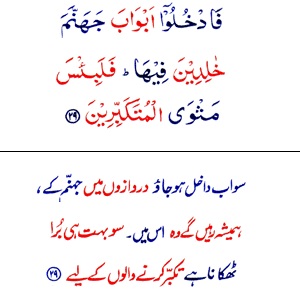 فَادْخُلُوْۤا اَبْوَابَ جَهَنَّمَ
خٰلِدِيْنَ فِيْهَا ؕ فَلَبِئْسَ
مَثْوَى الْمُتَكَبِّرِيْنَ ۲۹
سو اب داخل ہو جاؤ دروازوں میں جہنّم کے ،
ہمیشہ رہیں گے وہ اس میں۔ سو بہت ہی بُرا
ٹھکانا ہے تکبّر کرنے والوں کے لیے ۲۹